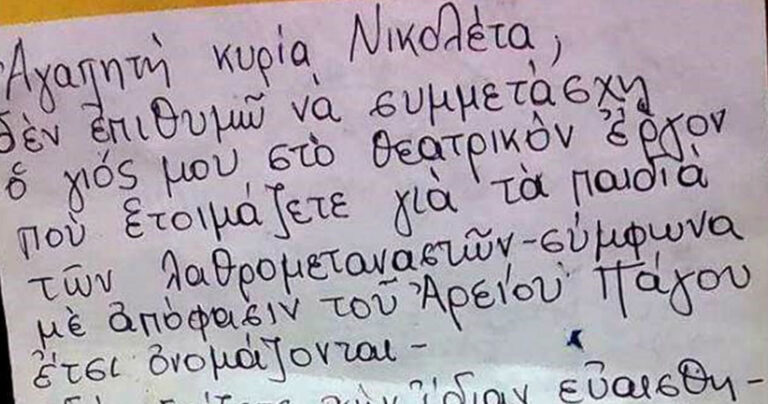 Ἀγαπητὴ κυρία Νικολέτα,
δὲν ἐπιθυμῶ νὰ συμμετάσχῃ
ὁ γιός μου στὸ θεατρικὸν ἔργον
ποὺ ἑτοιμάζετε γιὰ τὰ παιδιὰ
τῶν λαθρομεταναστῶν-σύμφωνα
μὲ ἀπόφασιν τοῦ Ἀρείου Πάγου
ἔτσι ὀνομάζονται-
ἴδιαν εὐαισθη-